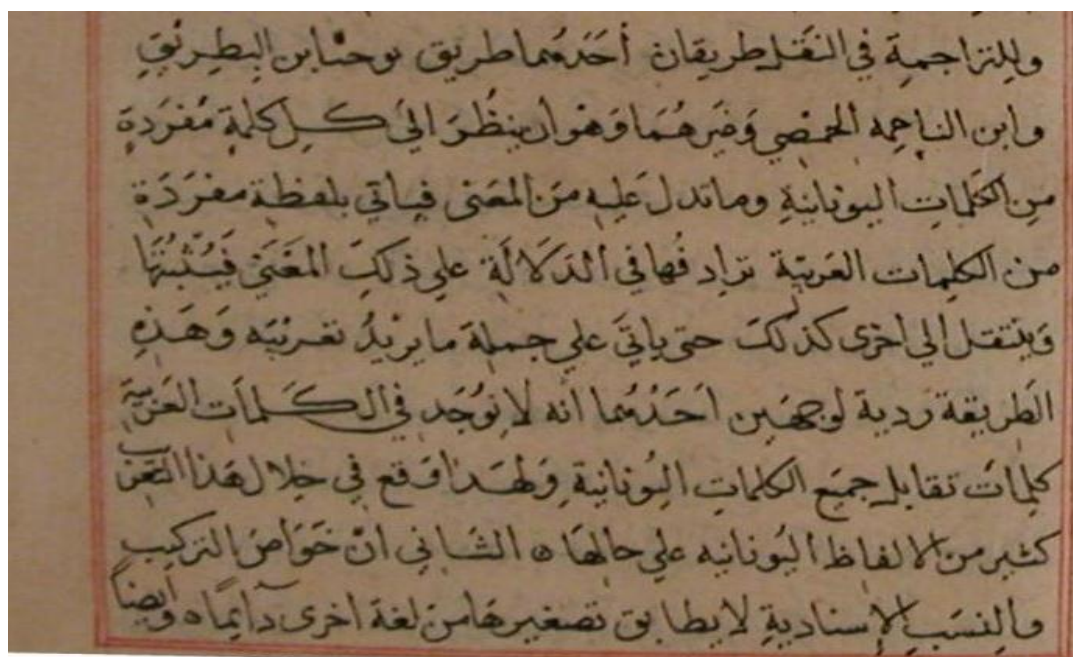 وللتراجمة في النقل طريقان أَحَدهُما طريق يوحنا ابن البِطرِيقِ
وابن الناعِمه الحِمْصِي وَغيَرهُمَا وَهوَان ينظُرَ اليَ كل كلمةٍ مُفرَدَةٍ
مِن الكلماتِ اليونانيةِ وماتدل عَليهِ مِنَ المَعَنى فياتي بلفظة مفرَدَةٍ
من الكلِمات العَربيّة ترادفُها في الدَلاَلَةِ علي ذلكَ المَعَنيَ فَيُثبتُهَا
وَينتقل الي اخرى كذلكَ حتى ياتيَ علي جملةَ ما يريْدُ تعريْبَه وَهَذِهِ
الطَريقة رَدية لوجهَين احَدُهُما انه لا يوُجَد في الكَلمات العَرَبيَّةِ
كلِماتٌ تقابل جميَع الكلماتِ اليُونانيةِ وَلهَذا وَقع في خِلال هَذا التَعريب
كثير من الالفاظ اليُونانيه علي حالهَا ه الثاني انْ خَوَاصَ التركيبِ
والنِسَبِ الإسناديةِ لا يطابق تصغيرهَا من لغة اخرى دَايمًا ه وايضاً